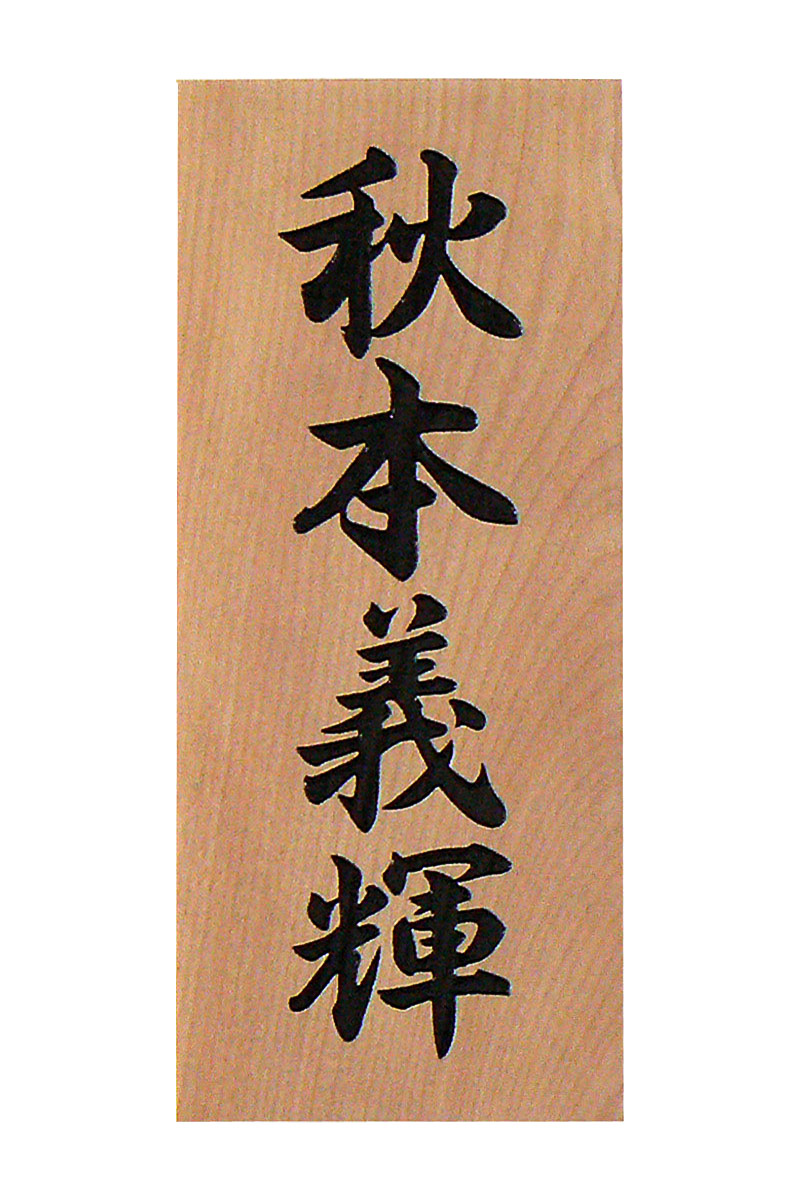 秋本義輝